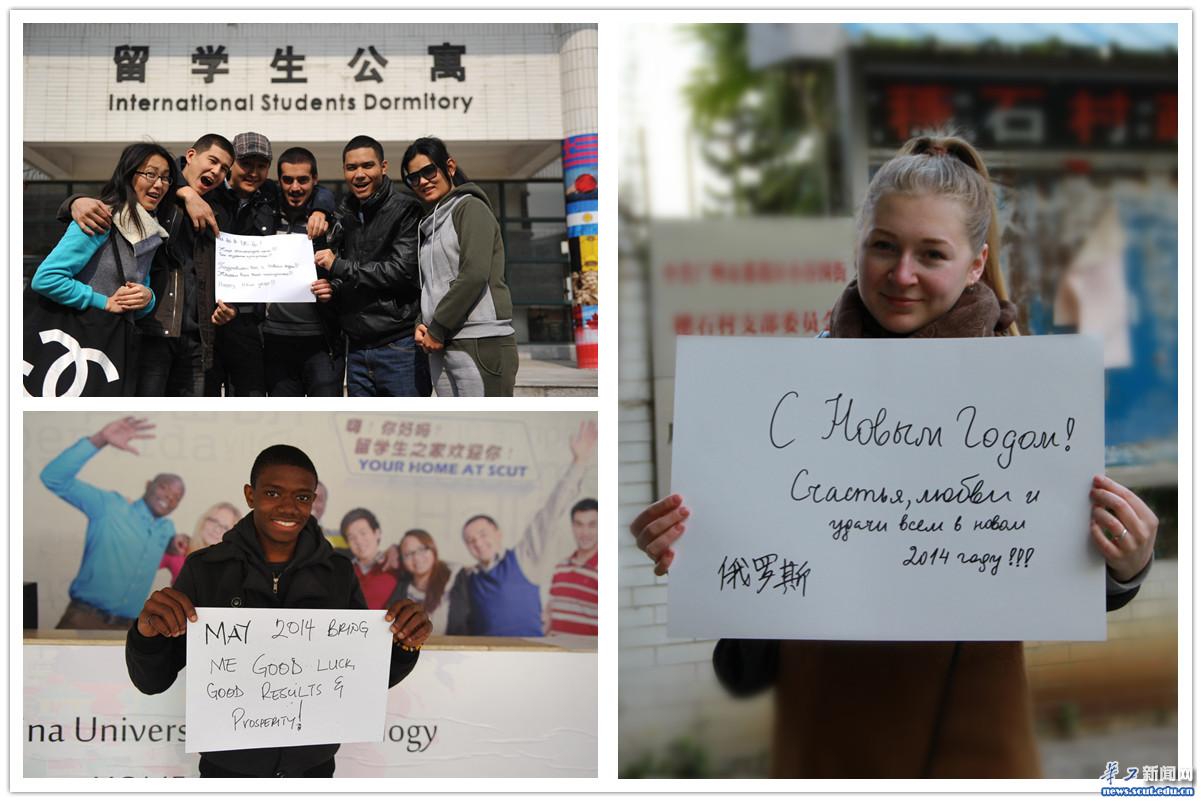 留学生公寓
International Students Dormitory
Happy New year!!!
嗨！你好吗？
留学生之家欢迎你！
YOUR HOME AT SCUT
MAY 2014 BRING
ME GOOD LUCK
GOOD RESULTS &
PROSPERITY!
na Univers
logy
石村
石村支部委员会
С Новым Годом!
Счастья, любви и
удачи всем в новом
2014 году!!!
俄罗斯
华工新闻网
news.scut.edu.cn